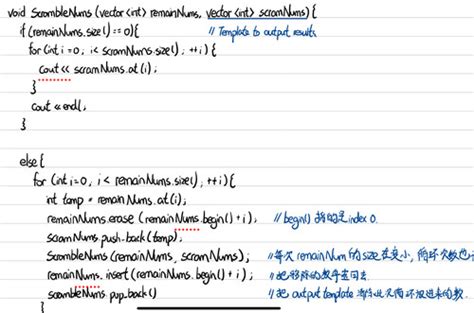 void ScrambleNums (vector<int> remainNums, vector<int> scramNums) {
if (remainNums.size() == 0){ // Template to output results
for (int i=0; i< scramNums.size(); ++i) {
cout << scramNums.at(i);
}
cout << endl;
}
else {
for (int i=0; i < remainNums.size(); ++i){
int temp = remainNums.at(i);
remainNums.erase (remainNums.begin()+i); // begin() 指的是index 0.
scramNums.push-back(temp);
ScrambleNums (remainNums, scramNums); // 每次 remainNum 的 size 在变小, 循环次数也
remainNums.insert (remainNums.begin()+i ); // 把移除的数字塞回去
scrambleNums.pup-back() // 把 output template 循环进来的数.
}